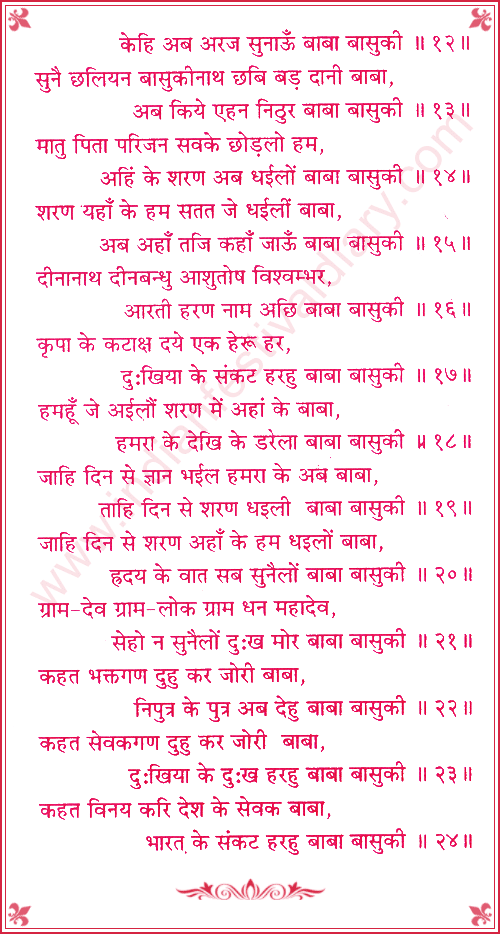 केहि अब अरज सुनाऊँ बाबा बासुकी ॥ १२॥
सुनै छलियन बासुकीनाथ छबि बड़ दानी बाबा,
अब किये एहन निठुर बाबा बासुकी ॥ १३॥
मातु पिता परिजन सवके छोड़लो हम,
अहिं के शरण अब धईलों बाबा बासुकी ॥ १४॥
शरण यहाँ के हम सतत जे धईलीं बाबा,
अब अहाँ तजि कहाँ जाऊँ बाबा बासुकी ॥ १५॥
दीनानाथ दीनबन्धु आशुतोष विश्वम्भर,
आरती हरण नाम अछि बाबा बासुकी ॥ १६॥
कृपा के कटाक्ष दये एक हेरू हर,
दु:खिया के संकट हरहु बाबा बासुकी ॥ १७॥
हमहूँ जे अईलौं शरण में अहां के बाबा,
हमरा के देखि के डरेला बाबा बासुकी ॥ १८॥
जाहि दिन से ज्ञान भईल हमरा के अब बाबा,
ताहि दिन से शरण धइली बाबा बासुकी ॥ १९॥
जाहि दिन से शरण अहाँ के हम धइलों बाबा,
ह्रदय के वात सब सुनैलों बाबा बासुकी ॥ २०॥
ग्राम-देव ग्राम-लोक ग्राम धन महादेव,
सेहो न सुनैलों दु:ख मोर बाबा बासुकी ॥ २१॥
कहत भक्तगण दुहु कर जोरी बाबा,
निपुत्र के पुत्र अब देहु बाबा बासुकी ॥ २२॥
कहत सेवकगण दुहु कर जोरी बाबा,
दु:खिया के दु:ख हरहु बाबा बासुकी ॥ २३॥
कहत विनय करि देश के सेवक बाबा,
भारत के संकट हरहु बाबा बासुकी ॥ २४॥
www.indianfestivaldiary.com